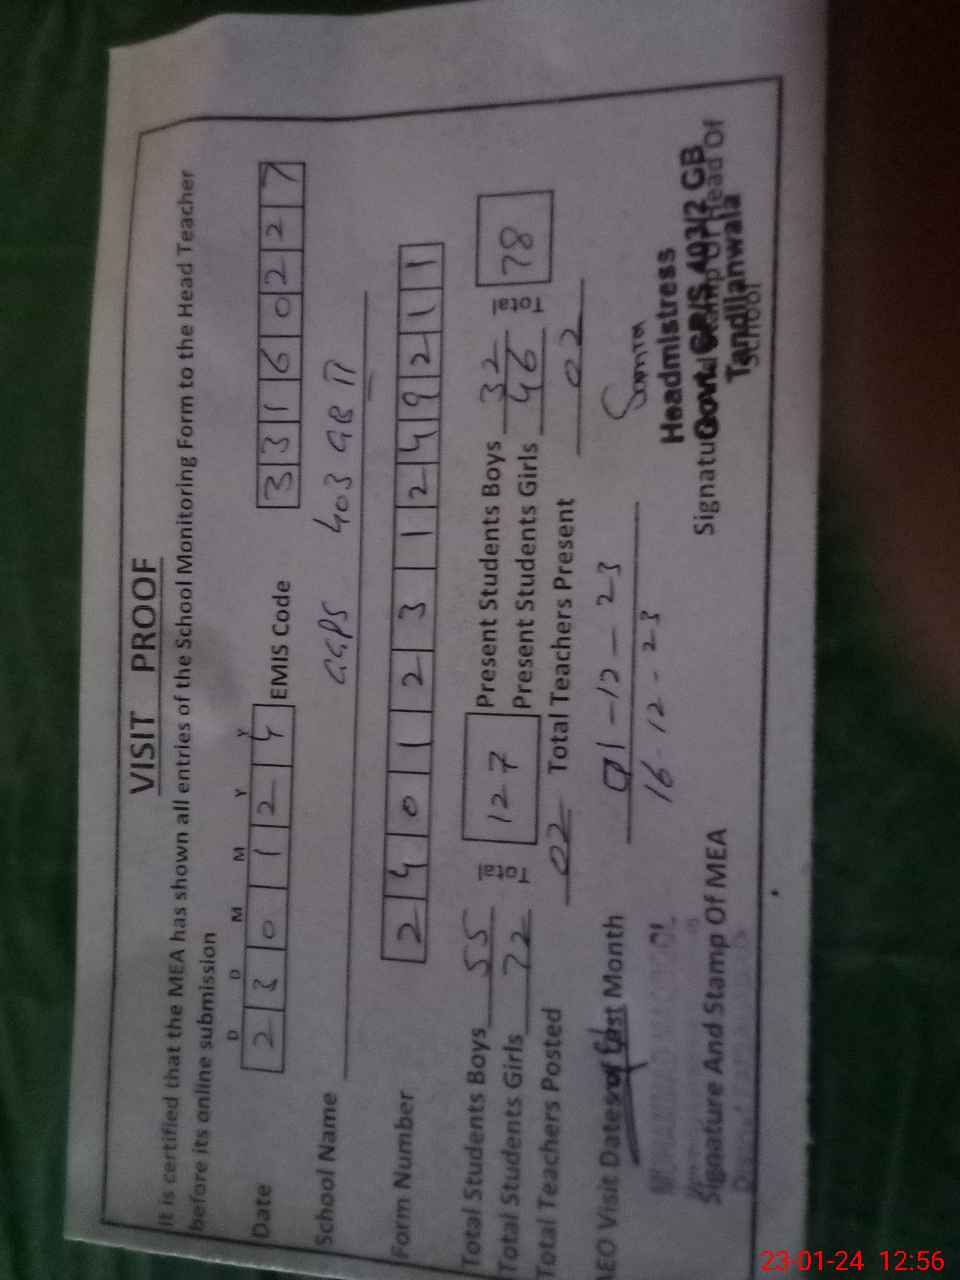 VISIT PROOF
It is certified that the MEA has shown all entries of the School Monitoring Form to the Head Teacher
before its online submission
D D M M Y Y
Date 2 3 0 1 2 4 EMIS Code 3 3 1 6 0 2 2 7
School Name GGPS 403 GB II
Form Number 2 4 0 1 2 3 1 2 4 9 2 1 1
Total Students Boys 55 Total 127 Present Students Boys 32 Total 78
Total Students Girls 72 Present Students Girls 46
Total Teachers Posted 02 Total Teachers Present 02
AEO Visit Dates of Last Month 01-12-23
16-12-23
Headmistress
Govt. GP/S 403/2 GB
Tandlianwala
Signature And Stamp Of MEA
Signature Stamp Of Head Of
School
23-01-24 12:56